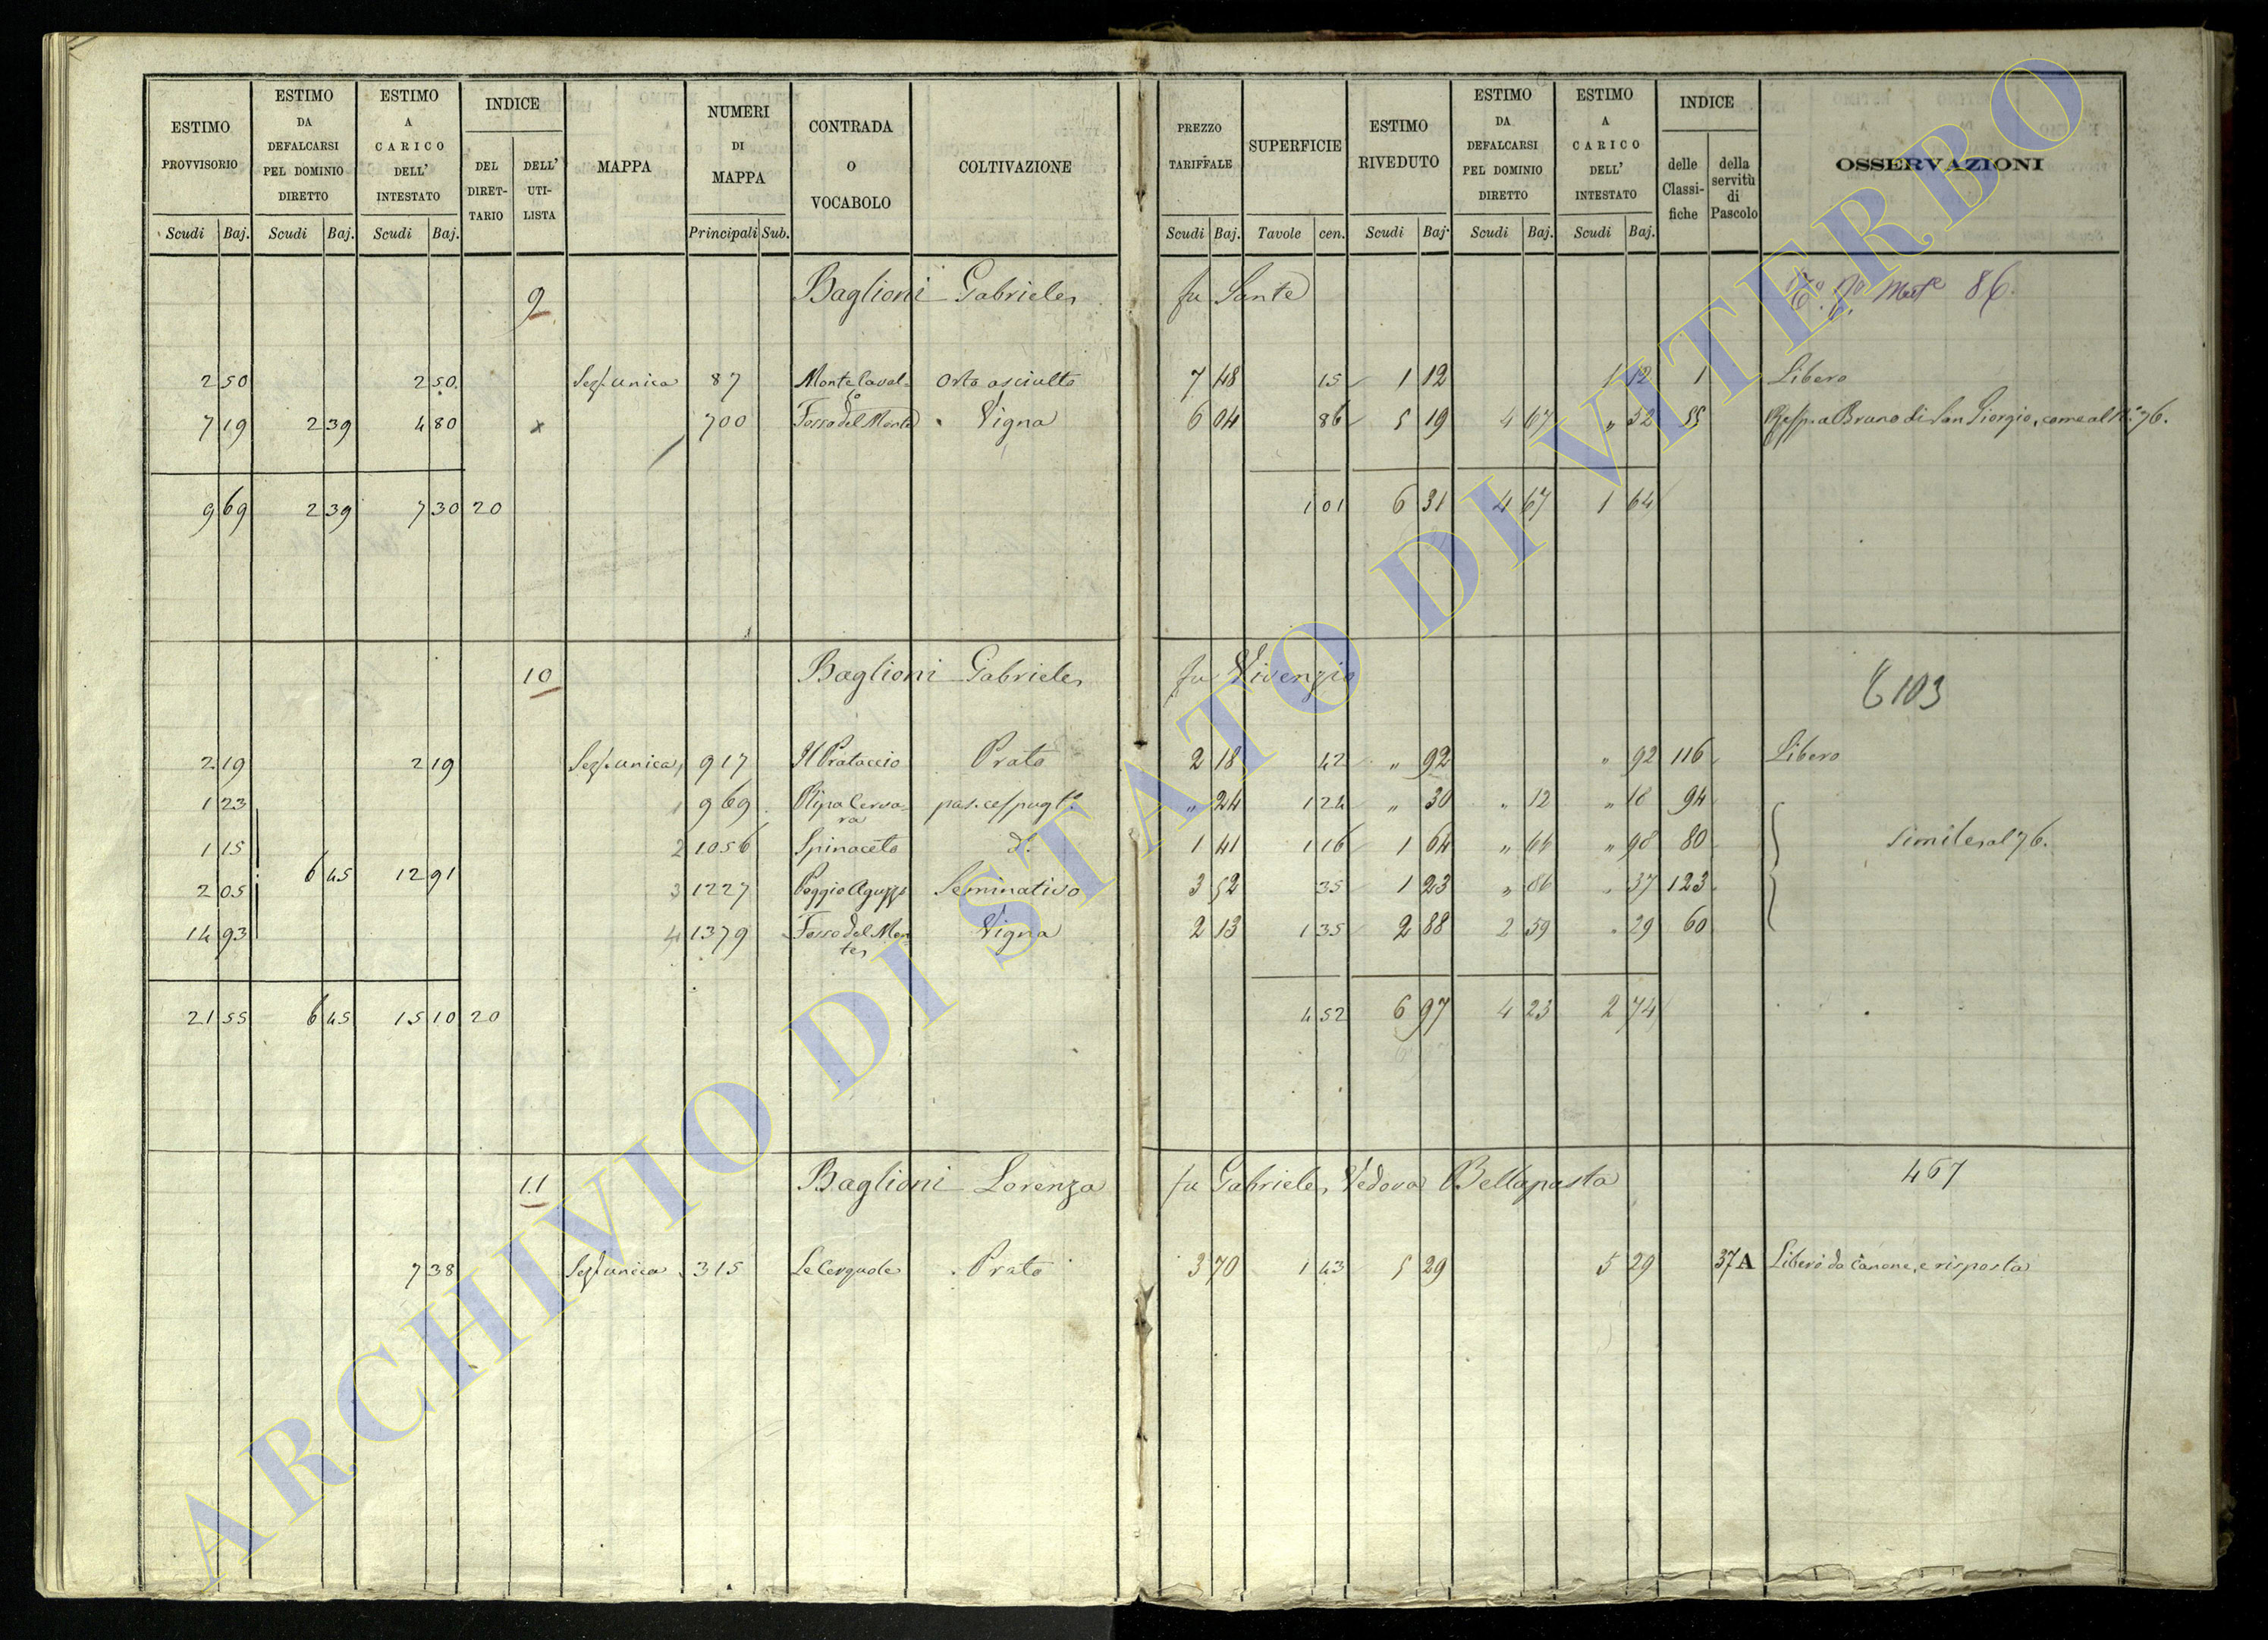 ESTIMO PROVVISORIO Scudi Baj.
ESTIMO DA DEFALCARSI PEL DOMINIO DIRETTO Scudi Baj.
ESTIMO A CARICO DELL' INTESTATO Scudi Baj.
INDICE DEL DIRET-TARIO DELL' UTI-LISTA
MAPPA
NUMERI DI MAPPA Principali Sub.
CONTRADA O VOCABOLO
COLTIVAZIONE
PREZZO TARIFFALE Scudi Baj.
SUPERFICIE Tavole cen.
ESTIMO RIVEDUTO Scudi Baj.
ESTIMO DA DEFALCARSI PEL DOMINIO DIRETTO Scudi Baj.
ESTIMO A CARICO DELL' INTESTATO Scudi Baj.
INDICE delle Classi-fiche della servitù di Pascolo
OSSERVAZIONI
9 Baglioni Gabriele fu Sante 86.
2 50 2 50 Sez. unica 87 Orto asciutto 7 48 15 1 12 1 12 1 Libero
7 19 2 39 4 80 x 700 Fosso del Monte Vigna 6 04 86 5 19 4 67 " 52 55 a Bruno di San Giorgio, come al N.° 76.
9 69 2 39 7 30 20 1 01 6 31 4 67 1 64
10 Baglioni Gabriele fu Vivenzio 103
2 19 2 19 Sez. unica 917 Il Prataccio Prato 2 18 42 " 92 " 92 116 Libero
1 23 1 969 Ripa Cerva-ra pas. cespugl.° " 24 1 24 " 30 " 12 " 18 94
1 15 2 1056 Spinaceto d.° 1 41 1 16 1 64 " 66 " 98 80 Simile al 76.
6 45 12 91
2 05 3 1227 Poggio Aguzzo Seminativo 3 52 35 1 23 " 86 " 37 123
14 93 4 1379 Fosso del Mon-te Vigna 2 13 1 35 2 88 2 59 " 29 60
21 55 6 45 15 10 20 4 52 6 97 4 23 2 74
11 Baglioni Lorenza fu Gabriele, Vedova Bellapasta 467
7 38 Sez. unica 315 Le Cerquole Prato 3 70 1 43 5 29 5 29 37A Libero da Canone, e risposta
ARCHIVIO DI STATO DI VITERBO